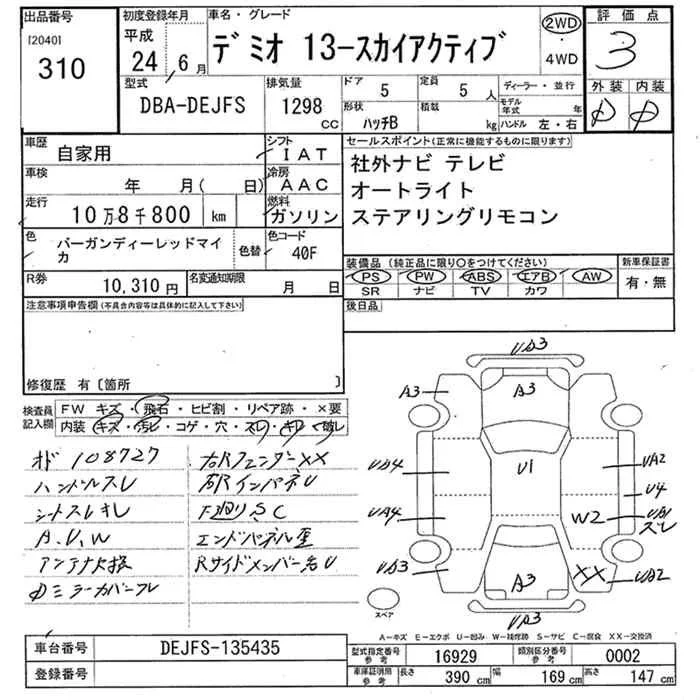 出品番号
[2040]
310
初度登録年月
平成
24 / 6 月
車名・グレード
デミオ 13-スカイアクティブ
2WD
・
4WD
評価点
3
型式
DBA-DEJFS
排気量
1298
CC
ドア
5
定員
5 人
形状
ハッチB
積載
kg
ディーラー・並行
モデル年式 年
ハンドル 左・右
外装 内装
D D
車歴
自家用
シフト
IAT
車検
年 月( 日)
冷房
AAC
走行
10万8千800 km
燃料
ガソリン
色
バーガンディーレッドマイカ
色替
色コード
40F
R券
10,310 円
名変通知期限
月 日
セールスポイント(正常に機能するものに限ります)
社外ナビ テレビ
オートライト
ステアリングリモコン
装備品(純正品に限り○をつけてください)
新車保証書
PS PW ABS エアB AW
SR ナビ TV カワ
有・無
後日品
注意事項申告欄(不具合内容等は具体的に記入して下さい)
修復歴 有〔箇所 〕
検査員記入欄
FW キズ・飛石・ヒビ割・リペア跡・×要
内装 キズ・汚レ・コゲ・穴・スレ・キレ・破レ
108727
ハンドルスレ
シートスレキレ
A.U.W
アンテナ欠損
ミラーカバースレ
右Rフェンダーxx
RインパネU
F廻りS.C
エンドパネル歪
RサイドメンバーU
UD3
A3
A3
UD4
U1
UA2
U4
UA4
W2
UB1
スレ
UD3
A3
XX
UB2
UA3
スペア
A-キズ E-エクボ U-凹み W-補修跡 S-サビ C-腐食 XX-交換済
車台番号
DEJFS-135435
登録番号
型式指定番号参考
16929
類別区分番号参考
0002
車庫証明用参考
長さ
390 cm
幅
169 cm
高さ
147 cm